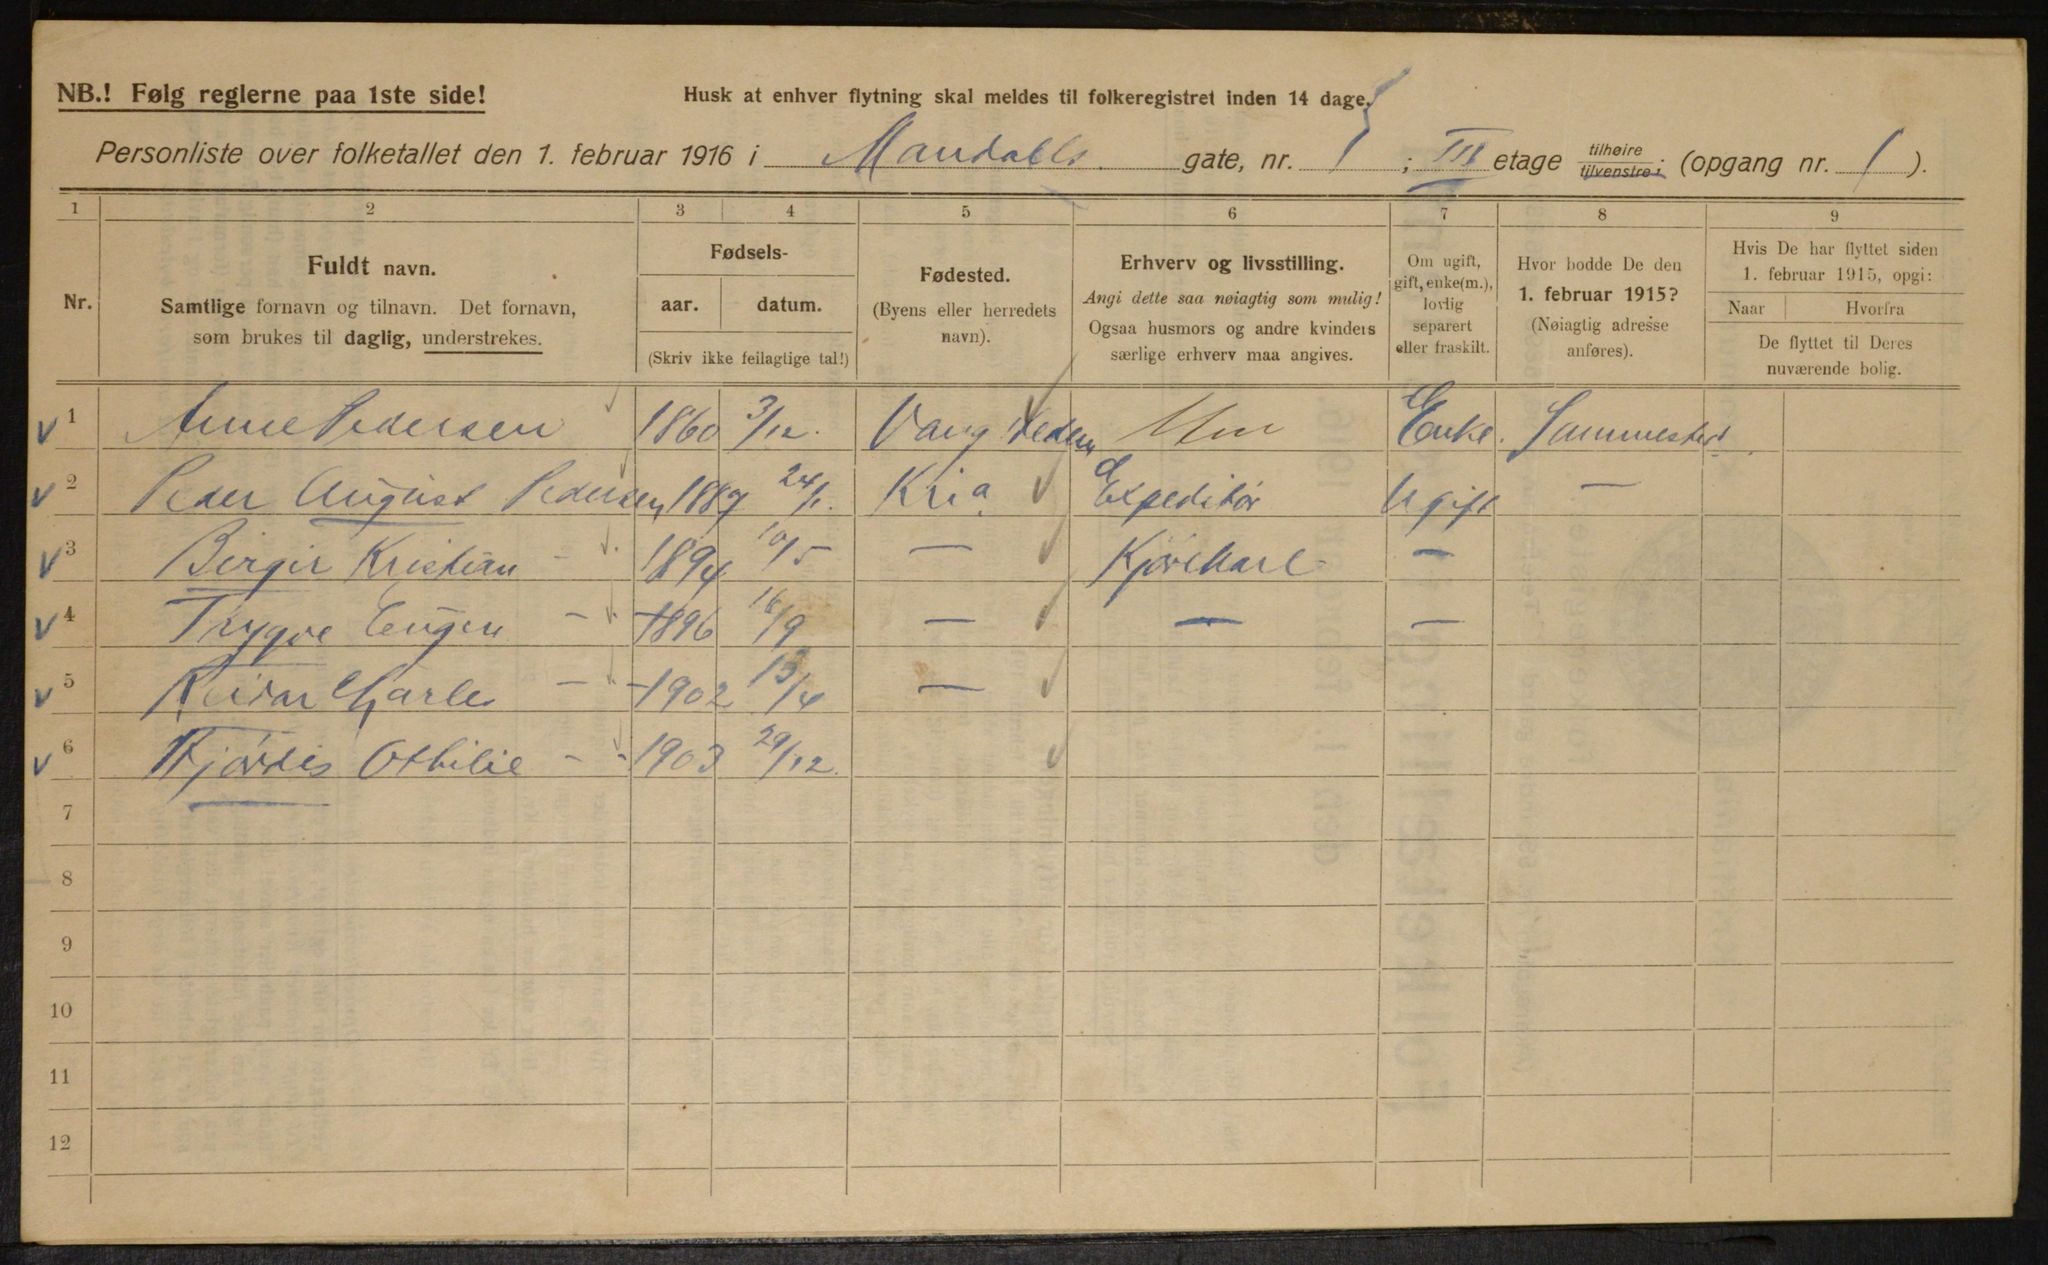 NB.! Følg reglerne paa 1ste side!
Husk at enhver flytning skal meldes til folkeregistret inden 14 dage.
Personliste over folketallet den 1. februar 1916 i Mandalls gate, nr. 1 ; III etage tilhøire tilvenstre; (opgang nr. 1 ).
1 2 3 4 5 6 7 8 9
Nr.
Fuldt navn.
Samtlige fornavn og tilnavn. Det fornavn,
som brukes til daglig, understrekes.
Fødsels-
aar. datum.
(Skriv ikke feilagtige tal!)
Fødested.
(Byens eller herredets
navn).
Erhverv og livsstilling.
Angi dette saa nøiagtig som mulig!
Ogsaa husmors og andre kvinders
særlige erhverv maa angives.
Om ugift,
gift, enke(m.),
lovlig
separert
eller fraskilt.
Hvor bodde De den
1. februar 1915?
(Nøiagtig adresse
anføres).
Hvis De har flyttet siden
1. februar 1915, opgi:
Naar Hvorfra
De flyttet til Deres
nuværende bolig.
1 Anne Pedersen 1860 3/12. Vang Enke. Sammested
2 Peder August Pedersen 1889 24/1. Kria Expeditör Ugift —
3 Birgir Kristian - 1894 10/5 — Kjörekarl —
4 Trygve Eugen - 1896 16/9 — — —
5 Reidar Charles - 1902 13/4 —
6 Hjördis Othilie - 1903 29/12.
7
8
9
10
11
12